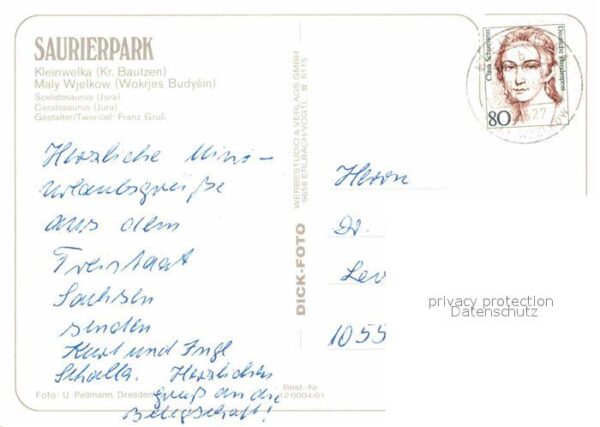 SAURIERPARK
Kleinwelka (Kr. Bautzen)
Maly Wjelkow (Wokrjes Budyšin)
Scelidosaurus (Jura)
Ceratosaurus (Jura)
Gestalter/Tworićel: Franz Gruß
Herzliche Mini-
urlaubsgrüße
aus dem
Freistaat
Sachsen
senden
Kurt und Inge
Schalla. Herzlichen
gruß an die
Belegschaft!
Foto: U. Pellmann, Dresden
Best.-Nr.
12 0004/01
DICK-FOTO
WERBESTUDIO & VERLAGS GMBH
9658 ERLBACH/VOGTL. ☎ 6115
Clara Schumann
Deutsche Bundespost
80
Herrn
Dr.
Lev
1055
privacy protection
Datenschutz